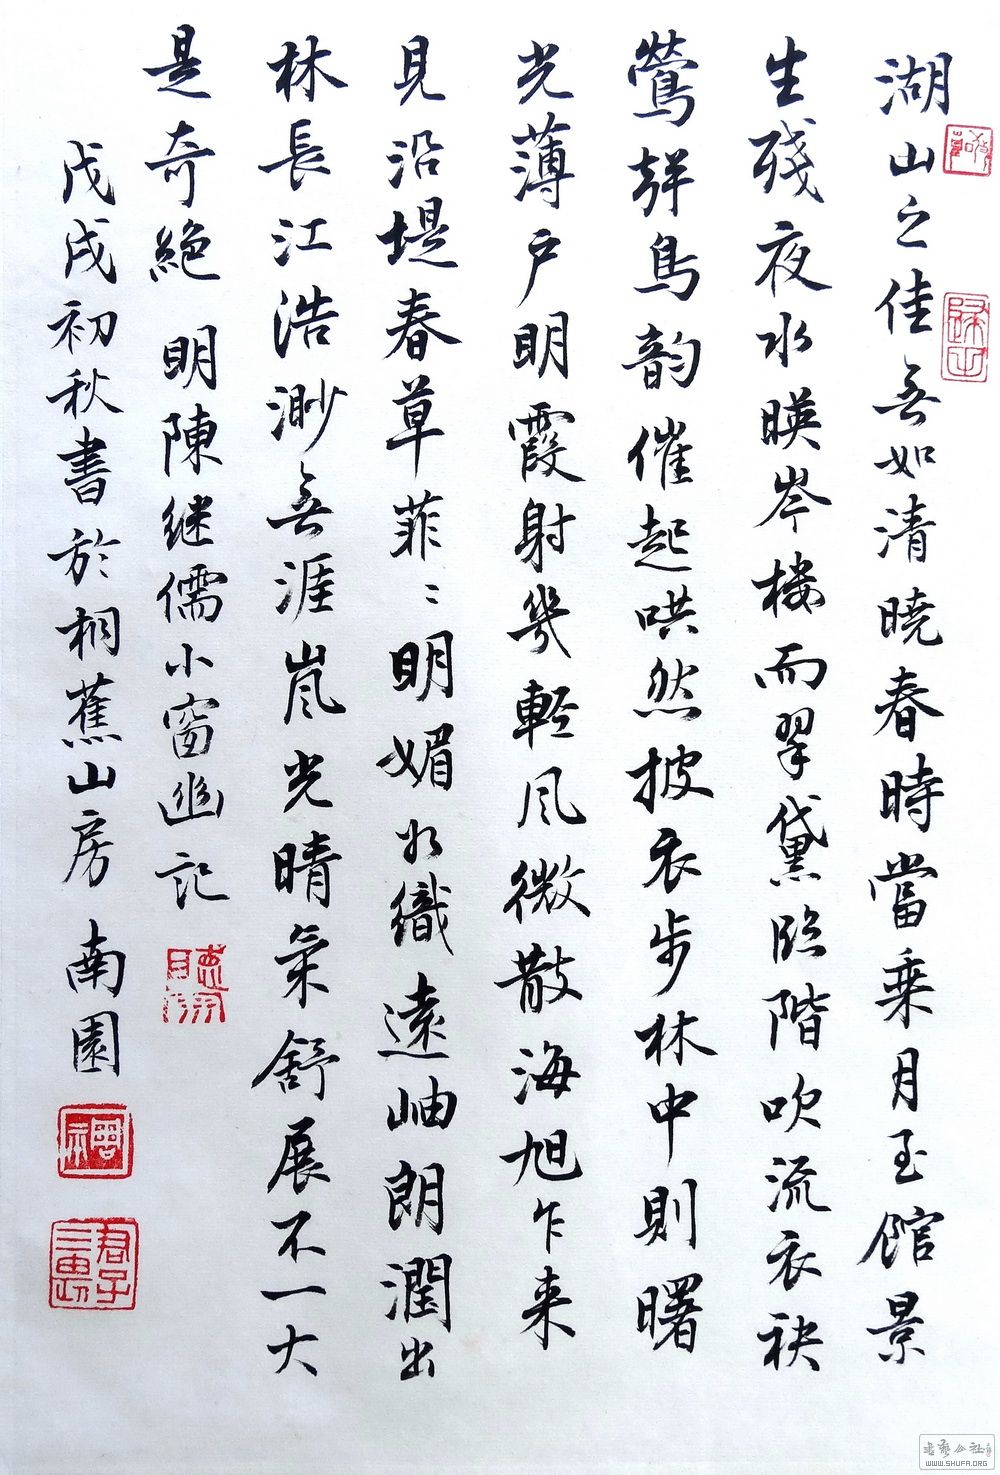 湖山之佳無如清曉春時當乘月至館景
生殘夜水暎岑楼而翠黛臨階吹流衣袂
鶯聲鳥韵催起哄然披衣步林中則曙
光薄户明霞射幾輕风微散海旭乍来
見沿堤春草菲〻明媚如織遠岫朗潤出
林長江浩渺無涯嵐光晴氣舒展不一大
是奇絶 明陳继儒小窗幽记
戊戌初秋書於桐蕉山房 南園
君子
WWW.SHUFA.ORG